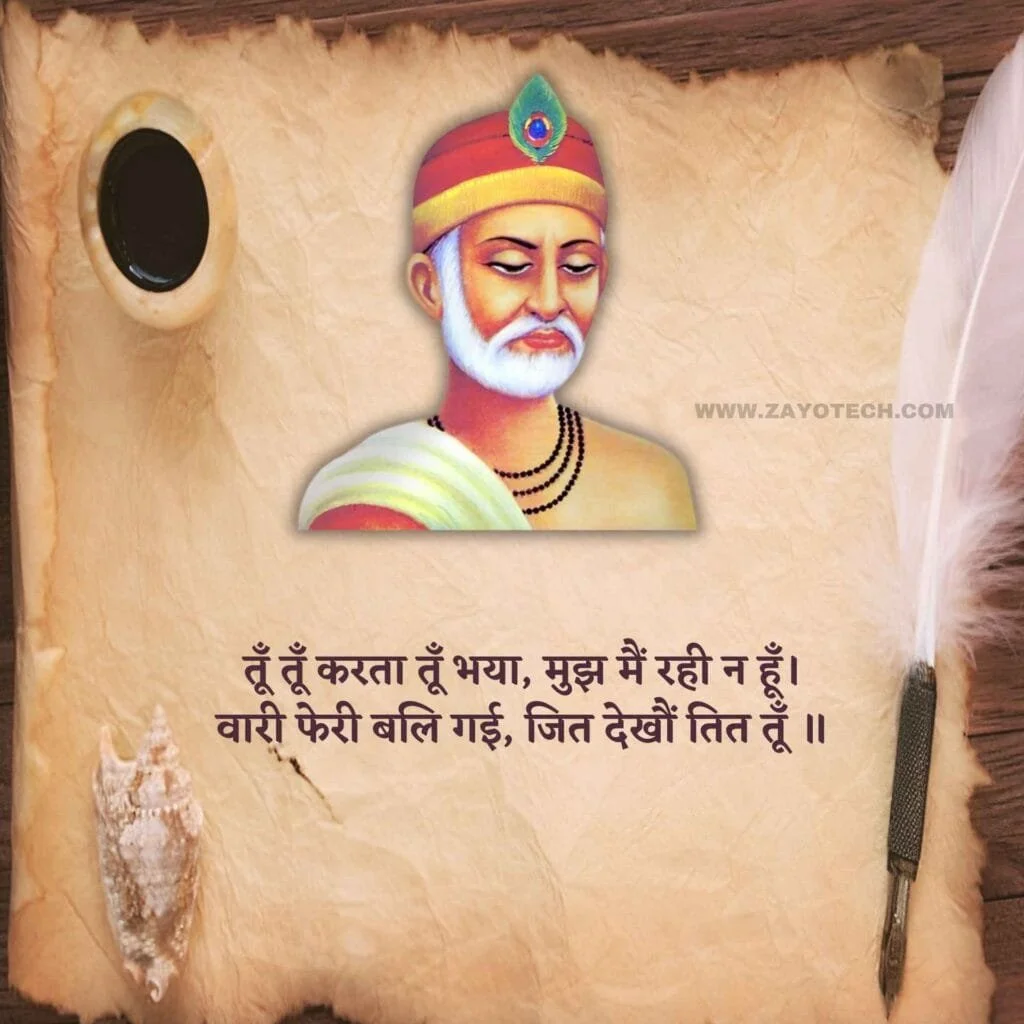 WWW.ZAYOTECH.COM
तूँ तूँ करता तूँ भया, मुझ मैं रही न हूँ।
वारी फेरी बलि गई, जित देखौं तित तूँ ॥